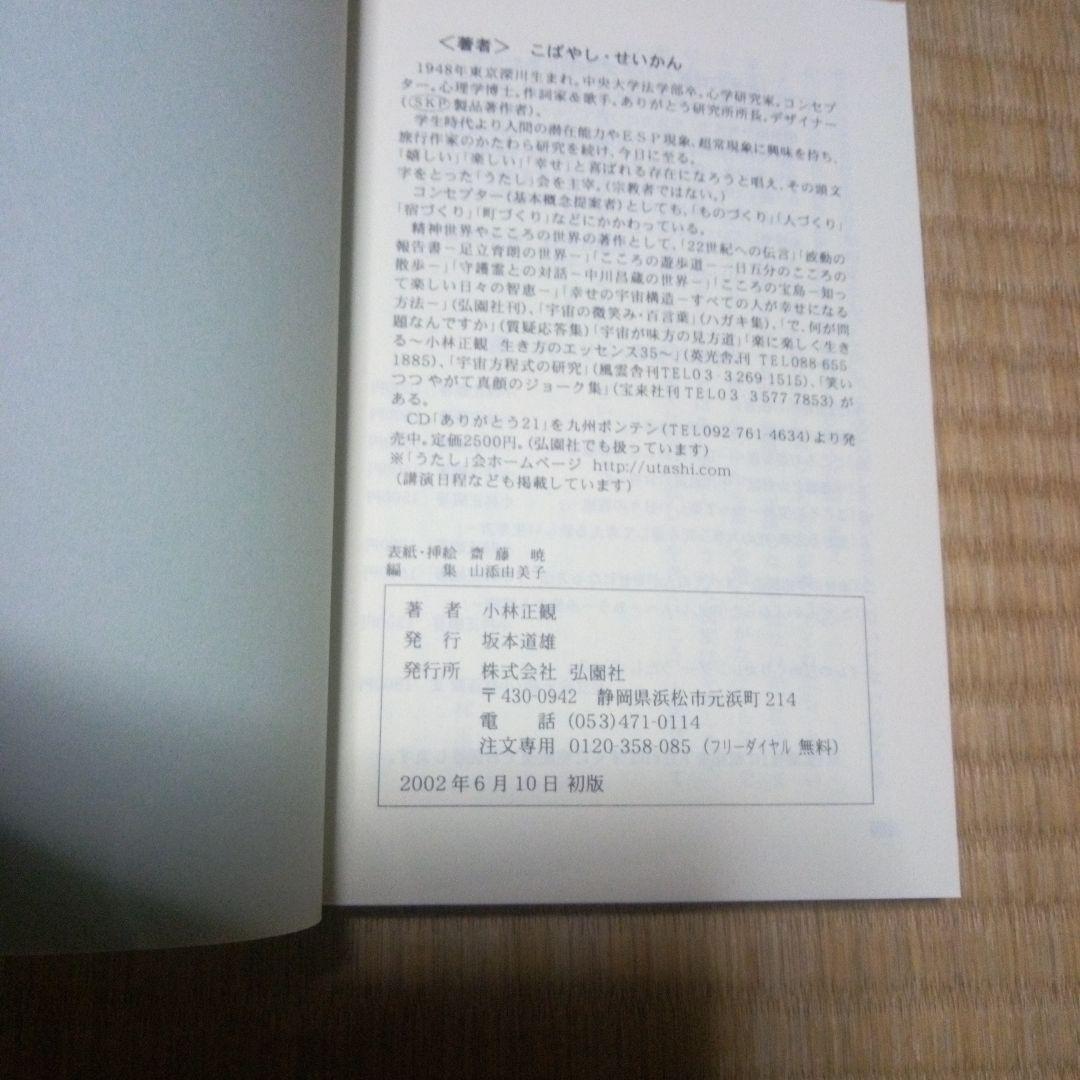 ＜著者＞　こばやし・せいかん
1948年東京深川生まれ。中央大学法学部卒。心学研究家。コンセプ
ター。心理学博士。作詞家＆歌手。ありがとう研究所所長。デザイナー
（SKP製品著作者）。
学生時代より人間の潜在能力やESP現象、超常現象に興味を持ち、
旅行作家のかたわら研究を続け、今日に至る。
「嬉しい」「楽しい」「幸せ」と喜ばれる存在になろうと唱え、その頭文
字をとった「うたし」会を主宰。（宗教者ではない。）
コンセプター（基本概念提案者）としても、「ものづくり」「人づくり」
「宿づくり」「町づくり」などにかかわっている。
精神世界やこころの世界の著作として、「22世紀への伝言」「波動の
報告書－足立育朗の世界－」「こころの遊歩道－一日五分のこころの
散歩－」「守護霊との対話－中川昌蔵の世界－」「こころの宝島－知っ
て楽しい日々の智恵－」「幸せの宇宙構造－すべての人が幸せになる
方法－」（弘園社刊）、「宇宙の微笑み・百言葉」（ハガキ集）、「で、何が問
題なんですか」（質疑応答集）「宇宙が味方の見方道」「楽に楽しく生き
る～小林正観 生き方のエッセンス35～」（英光舎刊 TEL088-655
1885）、「宇宙方程式の研究」（風雲舎刊TEL03-3269-1515）、「笑い
つつ やがて真顔のジョーク集」（宝来社刊TEL03 3577 7853）が
ある。
CD「ありがとう21」を九州ポンテン（TEL092-761-4634）より発
売中。定価2500円。（弘園社でも扱っています）
※「うたし」会ホームページ http://utashi.com
（講演日程なども掲載しています）
表紙・挿絵 齋藤 暁
編　　集 山添由美子
著　者　小林正観
発　行　坂本道雄
発行所　株式会社 弘園社
〒430-0942　静岡県浜松市元浜町214
電　　話 (053)471-0114
注文専用 0120-358-085（フリーダイヤル 無料）
2002年6月10日 初版